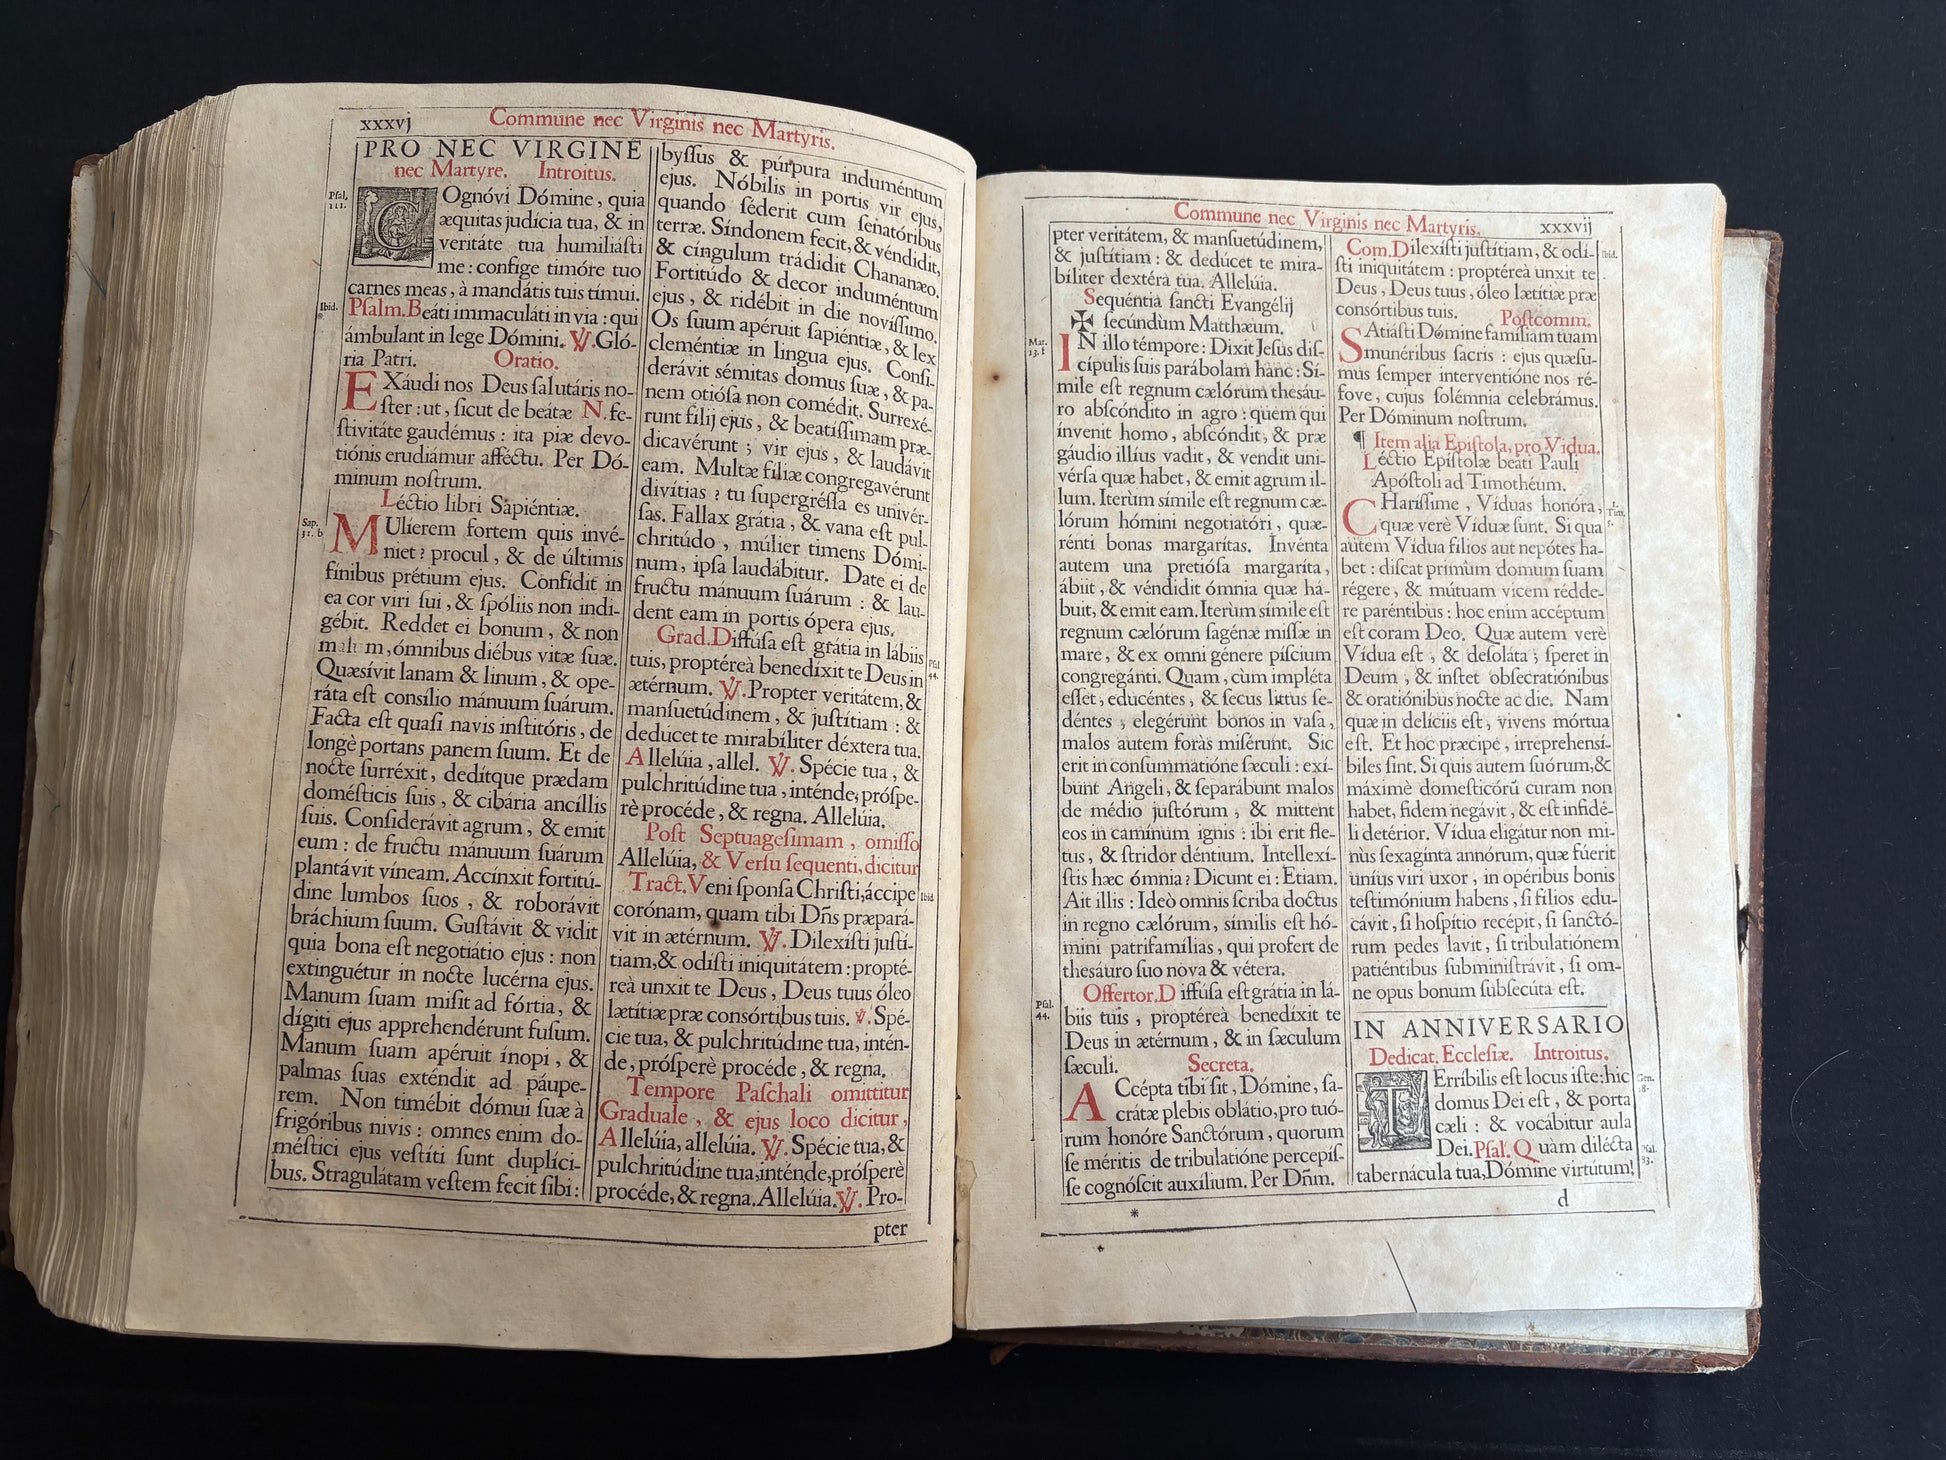 xxxvj
Commune nec Virginis nec Martyris.
PRO NEC VIRGINE
nec Martyre. Introitus.
Psal. 111.
COgnóvi Dómine, quia
æquitas judícia tua, & in
veritáte tua humiliásti
me: confige timóre tuo
carnes meas, à mandátis tuis tímui.
Ibid.
Psalm. Beáti immaculáti in via: qui
ámbulant in lege Dómini. ℣. Gló-
ria Patri. Oratio.
EXáudi nos Deus salutáris no-
ster: ut, sicut de beátæ N. fe-
stivitáte gaudémus: ita piæ devo-
tiónis erudiámur afféctu. Per Dó-
minum nostrum.
Léctio libri Sapiéntiæ.
Sap. 31. b
MUlíerem fortem quis invé-
niet? procul, & de últimis
fínibus prétium ejus. Confídit in
ea cor viri sui, & spóliis non indi-
gébit. Reddet ei bonum, & non
malum, ómnibus diébus vitæ suæ.
Quæsívit lanam & linum, & ope-
ráta est consílio mánuum suárum.
Facta est quasi navis institóris, de
longè portans panem suum. Et de
nocte surréxit, dedítque prædam
domésticis suis, & cibária ancíllis
suis. Considerávit agrum, & emit
eum: de fructu mánuum suárum
plantávit víneam. Accínxit fortitú-
dine lumbos suos, & roborávit
bráchium suum. Gustávit & vidit
quia bona est negotiátio ejus: non
extinguétur in nocte lucérna ejus.
Manum suam misit ad fórtia, &
dígiti ejus apprehendérunt fusum.
Manum suam apéruit ínopi, &
palmas suas exténdit ad páupe-
rem. Non timébit dómui suæ à
frigóribus nivis: omnes enim do-
méstici ejus vestíti sunt duplíci-
bus. Stragulátam vestem fecit sibi:
byssus & púrpura induméntum
ejus. Nóbilis in portis vir ejus,
quando séderit cum senatóribus
terræ. Síndonem fecit, & véndidit,
& cíngulum trádidit Chananæo.
Fortitúdo & decor induméntum
ejus, & ridébit in die novíssimo.
Os suum apéruit sapiéntiæ, & lex
cleméntiæ in lingua ejus. Consi-
derávit sémitas domus suæ, & pa-
nem otiósa non comédit. Surrexé-
runt filij ejus, & beatíssimam præ-
dicavérunt; vir ejus, & laudávit
eam. Multæ fíliæ congregavérunt
divítias? tu supergréssa es univér-
sas. Fallax grátia, & vana est pul-
chritúdo, múlier timens Dómi-
num, ipsa laudábitur. Date ei de
fructu mánuum suárum: & lau-
dent eam in portis ópera ejus.
Grad. Diffúsa est grátia in lábiis
Psal. 44.
tuis, proptéreà benedíxit te Deus in
ætérnum. ℣. Propter veritátem, &
mansuetúdinem, & justítiam: &
dedúcet te mirabíliter déxtera tua.
Allelúia, allel. ℣. Spécie tua, &
pulchritúdine tua, inténde, próspe-
rè procéde, & regna. Allelúia.
Post Septuagesimam, omisso
Allelúia, & Versu sequenti, dicitur
Tract. Veni sponsa Christi, áccipe
Ibid.
corónam, quam tibi Dñs præpará-
vit in ætérnum. ℣. Dilexísti justí-
tiam, & odísti iniquitátem: propté-
reà unxit te Deus, Deus tuus óleo
lætítiæ præ consórtibus tuis. ℣. Spé-
cie tua, & pulchritúdine tua, intén-
de, próspere procéde, & regna.
Tempore Paschali omittitur
Graduale, & ejus loco dicitur,
Allelúia, allelúia. ℣. Spécie tua, &
pulchritúdine tua, inténde, prósperè
procéde, & regna. Allelúia. ℣. Pro-
pter
Commune nec Virginis nec Martyris.
xxxvij
pter veritátem, & mansuetúdinem,
& justítiam: & dedúcet te mira-
bíliter dextéra tua. Allelúia.
Sequéntia sancti Evangélij
✠ secúndùm Matthæum.
Mat. 13. f
IN illo témpore: Dixit Jesus dis-
cípulis suis parábolam hanc: Sí-
mile est regnum cælórum thesáu-
ro abscóndito in agro: quem qui
ínvenit homo, abscóndit, & præ
gáudio illíus vadit, & vendit uni-
vérsa quæ habet, & emit agrum il-
lum. Iterùm símile est regnum cæ-
lórum hómini negotiatóri, quæ-
rénti bonas margarítas. Invénta
autem una pretiósa margaríta,
ábiit, & véndidit ómnia quæ há-
buit, & emit eam. Iterùm símile est
regnum cælórum sagénæ missæ in
mare, & ex omni génere píscium
congregánti. Quam, cùm impléta
esset, educéntes, & secus littus se-
déntes, elegérunt bonos in vasa,
malos autem foràs misérunt. Sic
erit in consummatióne sæculi: exí-
bunt Angeli, & separábunt malos
de médio justórum, & mittent
eos in camínum ignis: ibi erit fle-
tus, & stridor déntium. Intellexí-
stis hæc ómnia? Dicunt ei: Etiam.
Ait illis: Ideò omnis scriba doctus
in regno cælórum, símilis est hó-
mini patrifamílias, qui profert de
thesáuro suo nova & vétera.
Psal. 44.
Offertor. Diffúsa est grátia in lá-
biis tuis, proptéreà benedíxit te
Deus in ætérnum, & in sæculum
sæculi. Secreta.
ACcépta tibi sit, Dómine, sa-
crátæ plebis oblátio, pro tuó-
rum honóre Sanctórum, quorum
se méritis de tribulatióne percepís-
se cognóscit auxílium. Per Dñm.
*
Com. Dilexísti justítiam, & odí-
Ibid.
sti iniquitátem: proptéreà unxit te
Deus, Deus tuus, óleo lætítiæ præ
consórtibus tuis. Postcomm.
SAtiásti Dómine famíliam tuam
munéribus sacris: ejus quæsu-
mus semper interventióne nos ré-
fove, cujus solémnia celebrámus.
Per Dóminum nostrum.
¶ Item alia Epistola, pro Vidua.
Léctio Epístolæ beáti Pauli
Apóstoli ad Timothéum.
1. Tim. 5.
CHaríssime, Víduas honóra,
quæ verè Víduæ sunt. Si qua
autem Vídua filios aut nepótes ha-
bet: discat primùm domum suam
régere, & mútuam vicem rédde-
re paréntibus: hoc enim accéptum
est coram Deo. Quæ autem verè
Vídua est, & desoláta; speret in
Deum, & instet obsecratiónibus
& oratiónibus nocte ac die. Nam
quæ in delíciis est, vivens mórtua
est. Et hoc præcipe, irreprehensí-
biles sint. Si quis autem suórum, &
máximè domesticórū curam non
habet, fidem negávit, & est infidé-
li detérior. Vídua eligátur non mi-
nùs sexagínta annórum, quæ fúerit
uníus viri uxor, in opéribus bonis
testimónium habens, si filios edu-
cávit, si hospítio recépit, si sanctó-
rum pedes lavit, si tribulatiónem
patiéntibus subministrávit, si om-
ne opus bonum subsecúta est.
IN ANNIVERSARIO
Dedicat. Ecclesiæ. Introitus.
Gen. 28.
TErríbilis est locus iste: hic
domus Dei est, & porta
cæli: & vocábitur aula
Dei. Psal. Quàm dilécta
Psal. 83.
tabernácula tua, Dómine virtútum!
d